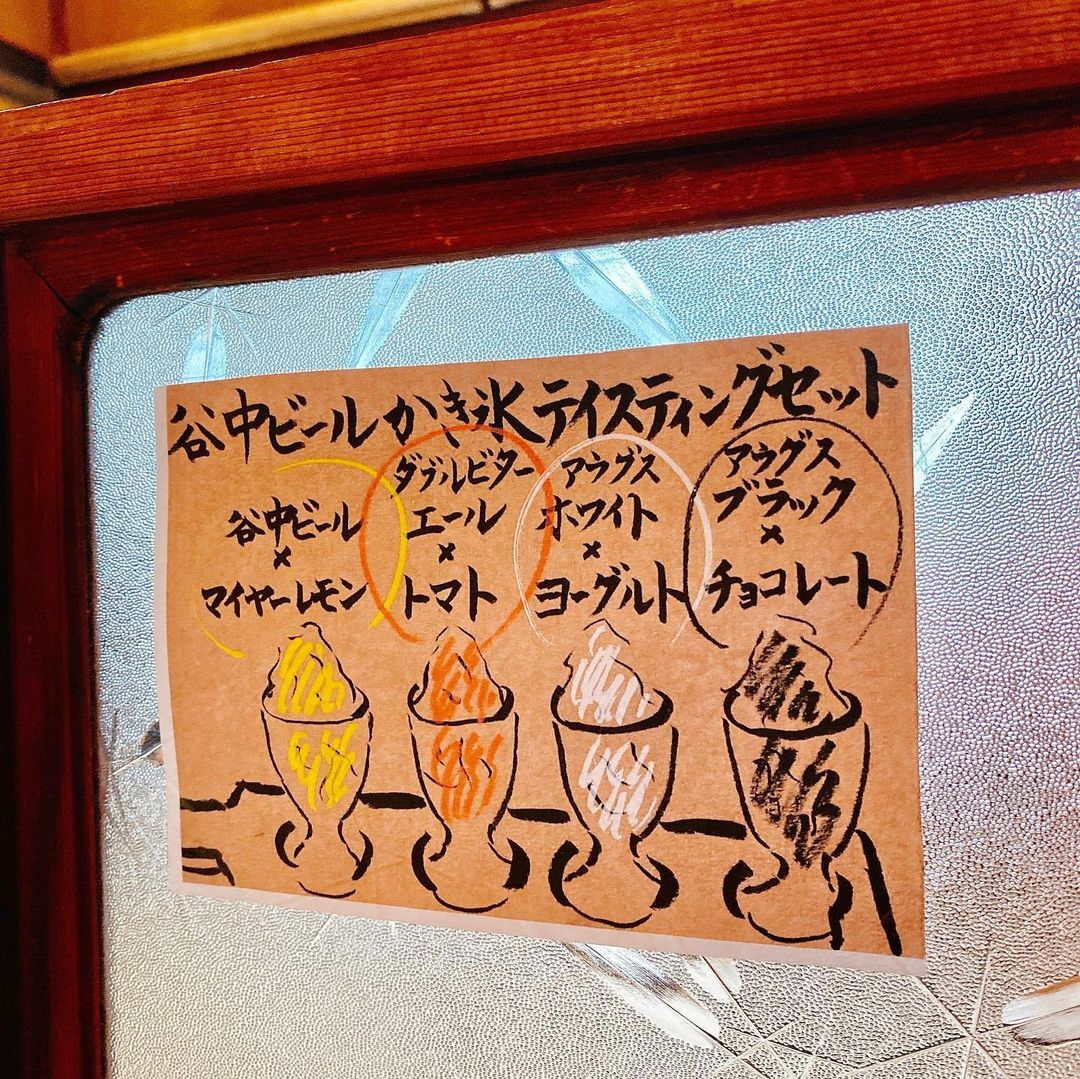 谷中ビールかき氷テイスティングセット
谷中ビール
×
マイヤーレモン
ダブルビター
エール
×
トマト
アウグス
ホワイト
×
ヨーグルト
アウグス
ブラック
×
チョコレート